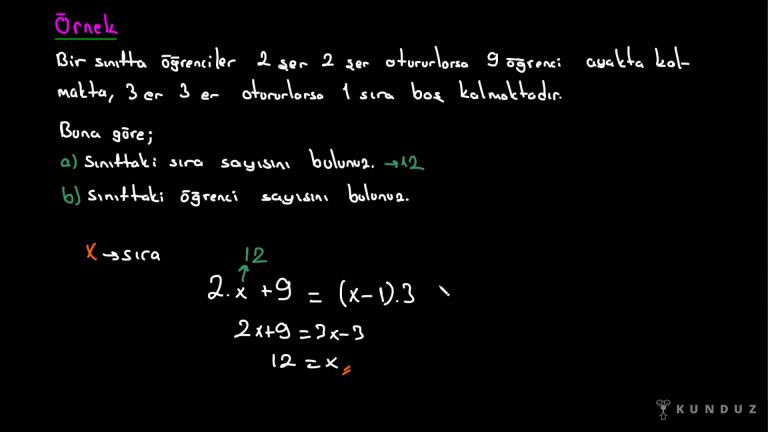 Örnek
Bir sınıfta öğrenciler 2 şer 2 şer otururlarsa 9 öğrenci ayakta kal-
makta, 3 er 3 er otururlarsa 1 sıra boş kalmaktadır.
Buna göre;
a) Sınıftaki sıra sayısını bulunuz. →12
b) Sınıftaki öğrenci sayısını bulunuz.
x →sıra
12
2.x +9 = (x-1).3
2x+9 = 3x-3
12 = x
KUNDUZ